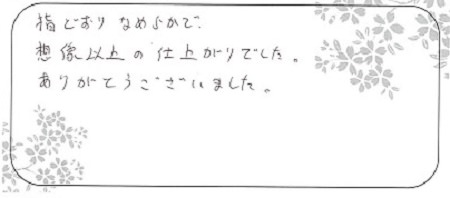 指どおりなめらかで、
想像以上の仕上がりでした。
ありがとうございました。